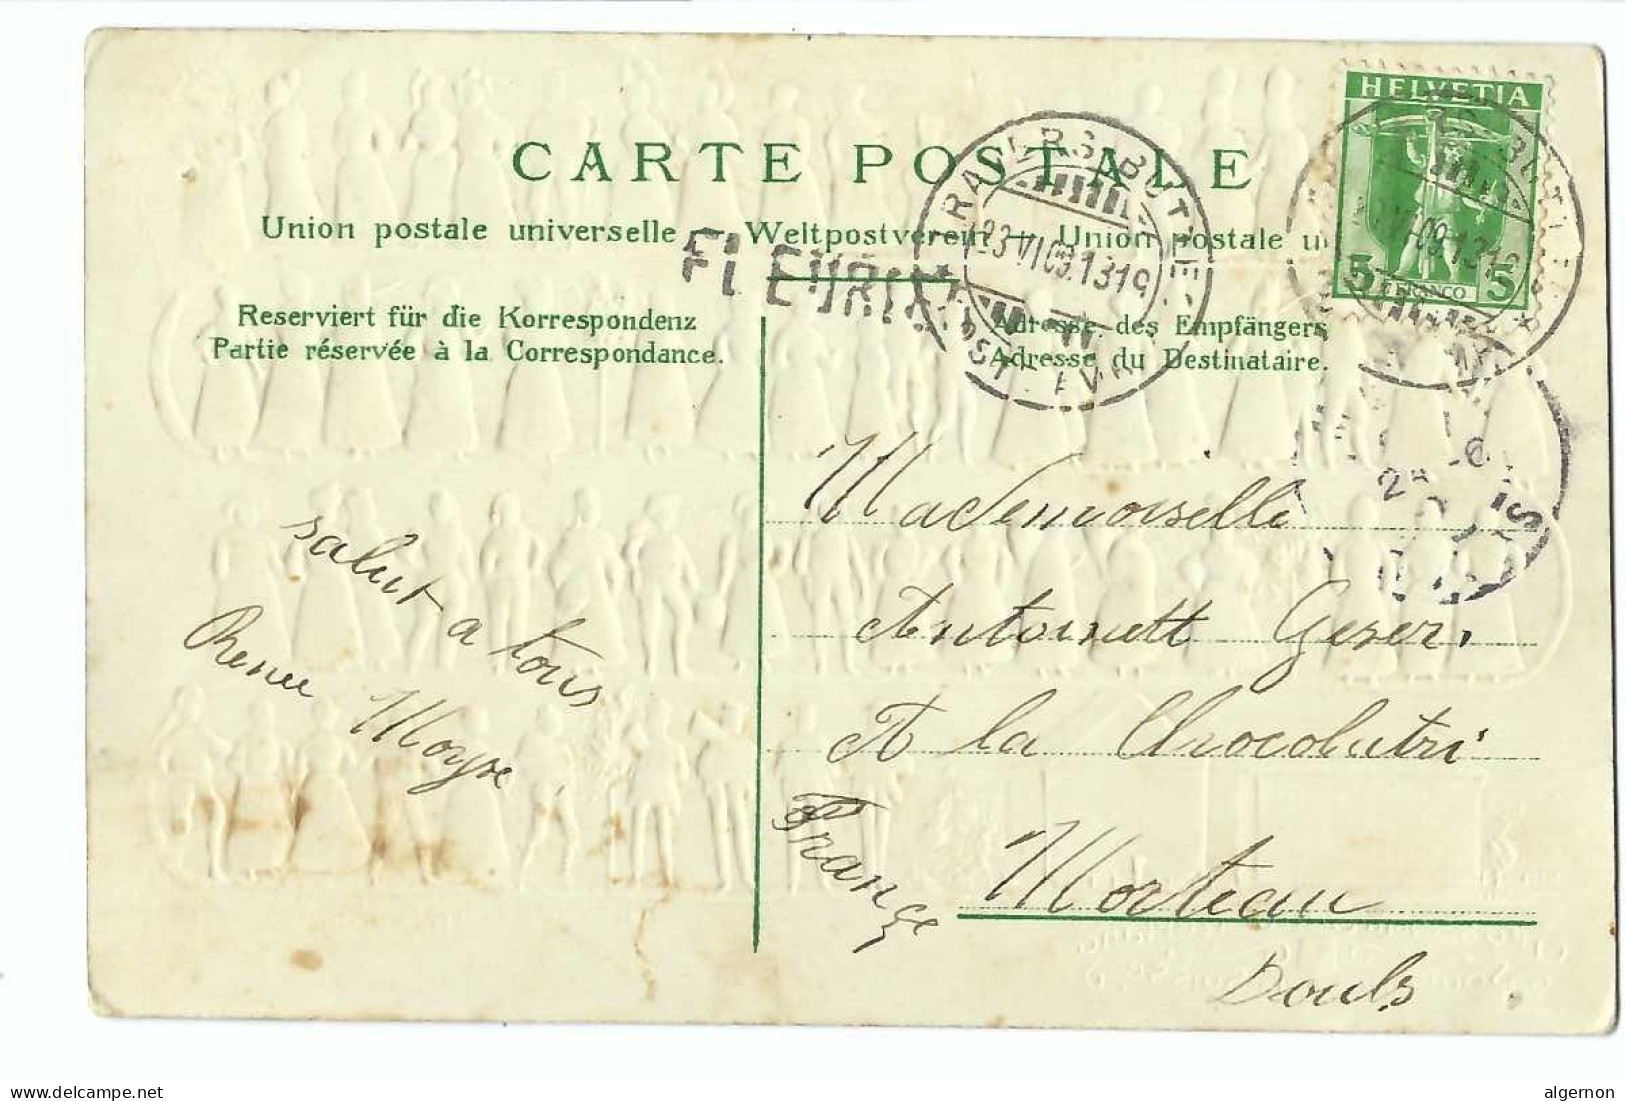 CARTE POSTALE
Union postale universelle — Weltpostverein — Union postale u
FLEURIER
TRAVERS-BUTTES
23 VI 09. 1319
AMBULANT
HELVETIA
VI-09. 1319
5 FRANCO 5
Reserviert für die Korrespondenz
Partie réservée à la Correspondance.
Adresse des Empfängers
Adresse du Destinataire.
salut a tous
Renee
Mademoiselle
Antoinett Geser
A la Chocolatri
France
Morteau
Doubs
www.delcampe.net
algernon